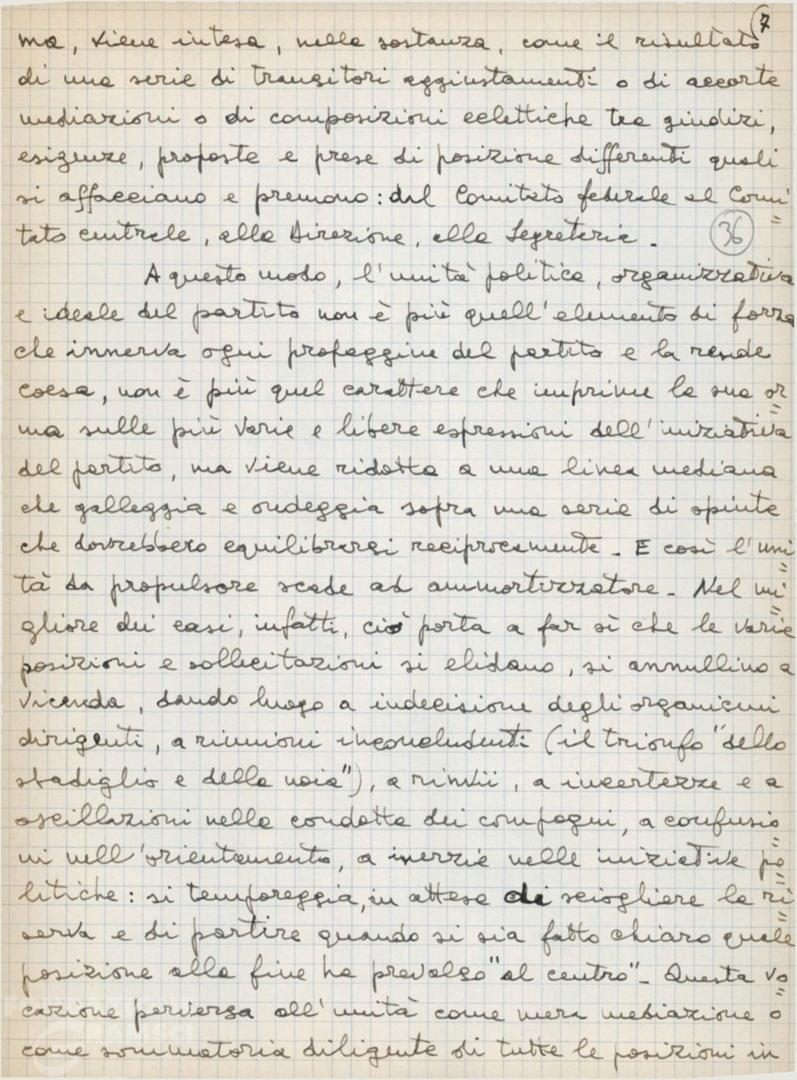 7
ma, viene intesa, nella sostanza, come il risultato
di una serie di transitori aggiustamenti o di accorte
mediazioni o di composizioni eclettiche tra giudizi,
esigenze, proposte e prese di posizione differenti quali
si affacciano e premono: dal Comitato federale al Comi=
tato centrale, alla Direzione, alla Segreteria. 36
A questo modo, l'unità politica, organizzativa
e ideale del partito non è più quell'elemento di forza
che innerva ogni propaggine del partito e la rende
coesa, non è più quel carattere che imprime la sua or=
ma sulle più varie e libere espressioni dell'iniziativa
del partito, ma viene ridotta a una linea mediana
che galleggia e ondeggia sopra una serie di spinte
che dovrebbero equilibrarsi reciprocamente. E così l'uni=
tà da propulsore scade ad ammortizzatore. Nel mi=
gliore dei casi, infatti, ciò porta a far sì che le varie
posizioni e sollecitazioni si elidano, si annullino a
vicenda, dando luogo a indecisione degli organismi
dirigenti, a riunioni inconcludenti (il trionfo "dello
sbadiglio e della noia"), a rinvii, a incertezze e a
oscillazioni nella condotta dei compagni, a confusio=
ni nell'orientamento, a inerzie nelle iniziative po=
litiche: si temporeggia, in attesa di sciogliere la ri=
serva e di partire quando si sia fatto chiaro quale
posizione alla fine ha prevalso "al centro". Questa vo=
cazione perversa all'unità come mera mediazione o
come sommatoria diligente di tutte le posizioni in